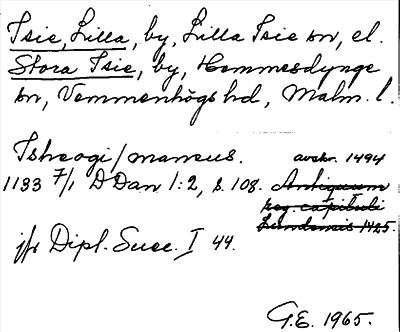 Tsie, Lilla, by, Lilla Tsie sn, el.
Stora Tsie, by, Hemmesdynge
sn, Vemmenhögs hd, Malm. l.
Tsheogi/mareus. avskr. 1494
1133 7/1 D Dan 1:2, s. 108. Antiquum
reg. capituli
Lundensis 1425.
jfr Dipl. Suec. I 44.
G.E. 1965.